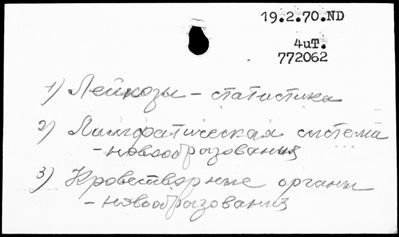 19.2.70.ND
4иТ.
772062
1) Лейкозы - статистика
2) Лимфатическая система
- новообразования
3) Кроветворные органы
- новообразования